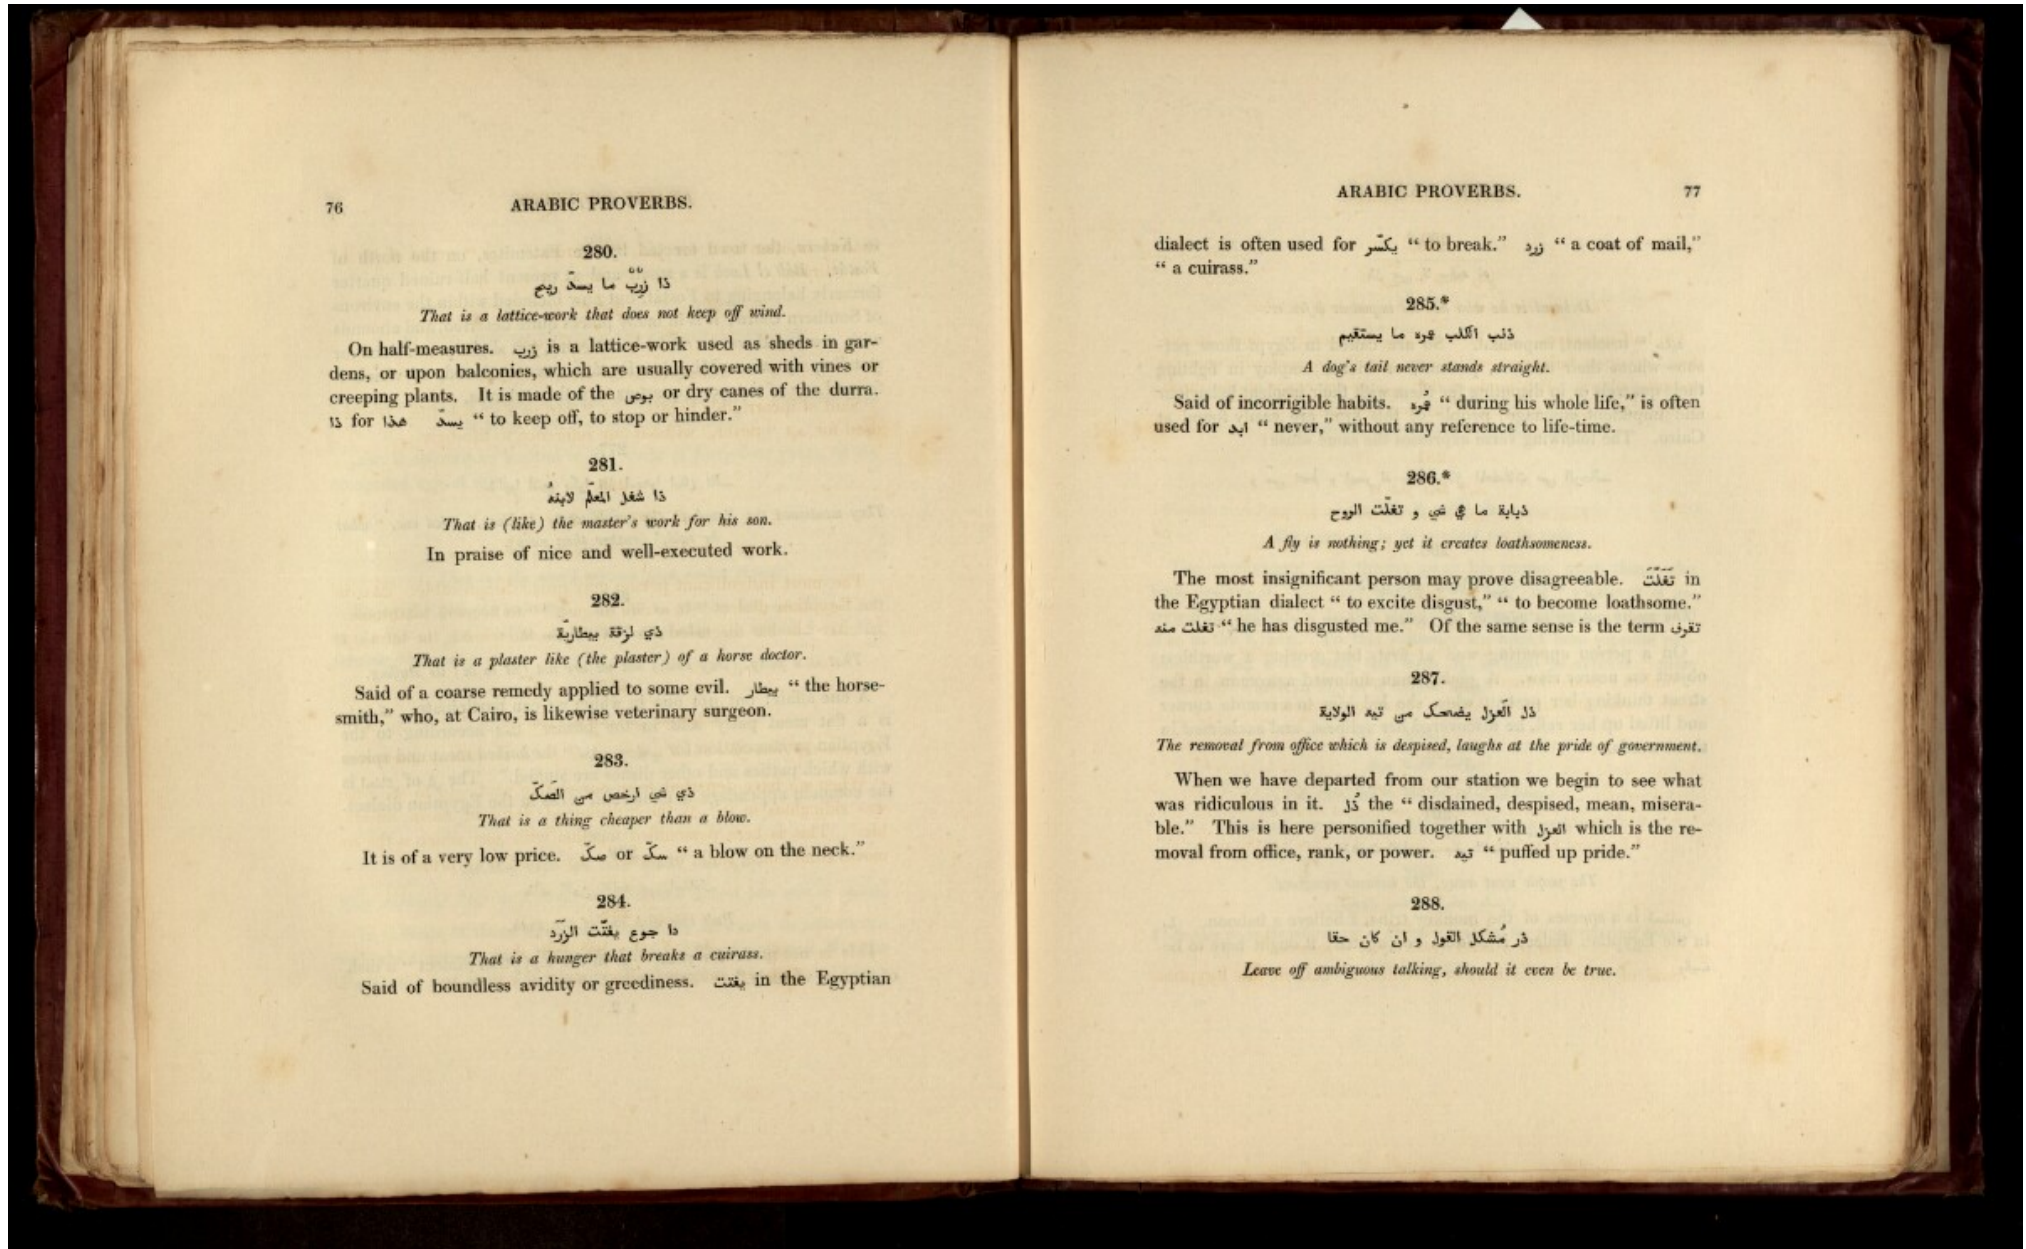 76 ARABIC PROVERBS.
280.
ذا زربٌ ما يسدّ ريح
That is a lattice-work that does not keep off wind.
On half-measures. زرب is a lattice-work used as sheds in gar-
dens, or upon balconies, which are usually covered with vines or
creeping plants. It is made of the بوص or dry canes of the durra.
ذا for هذا يسدّ “ to keep off, to stop or hinder.”
281.
ذا شغل المعلّم لابنهُ
That is (like) the master's work for his son.
In praise of nice and well-executed work.
282.
ذي لزقة بيطاريّة
That is a plaster like (the plaster) of a horse doctor.
Said of a coarse remedy applied to some evil. بيطار “ the horse-
smith,” who, at Cairo, is likewise veterinary surgeon.
283.
ذي شي ارخص من الصَكّ
That is a thing cheaper than a blow.
It is of a very low price. صكّ or سكّ “ a blow on the neck.”
284.
دا جوع يفتّت الزَرَد
That is a hunger that breaks a cuirass.
Said of boundless avidity or greediness. يفتت in the Egyptian
ARABIC PROVERBS. 77
dialect is often used for يكسّر “ to break.” زرد “ a coat of mail,”
“ a cuirass.”
285.*
ذنب الكلب عمره ما يستقيم
A dog's tail never stands straight.
Said of incorrigible habits. عُمره “ during his whole life,” is often
used for ابد “ never,” without any reference to life-time.
286.*
ذبابة ما هي شي و تغلّت الروح
A fly is nothing; yet it creates loathsomeness.
The most insignificant person may prove disagreeable. تَغَلَّتَ in
the Egyptian dialect “ to excite disgust,” “ to become loathsome.”
تغلت منه “ he has disgusted me.” Of the same sense is the term تقرف
287.
ذل العزل يضحك من تيه الولاية
The removal from office which is despised, laughs at the pride of government.
When we have departed from our station we begin to see what
was ridiculous in it. ذُل the “ disdained, despised, mean, misera-
ble.” This is here personified together with العزل which is the re-
moval from office, rank, or power. تيه “ puffed up pride.”
288.
ذر مُشكل القول و ان كان حقا
Leave off ambiguous talking, should it even be true.